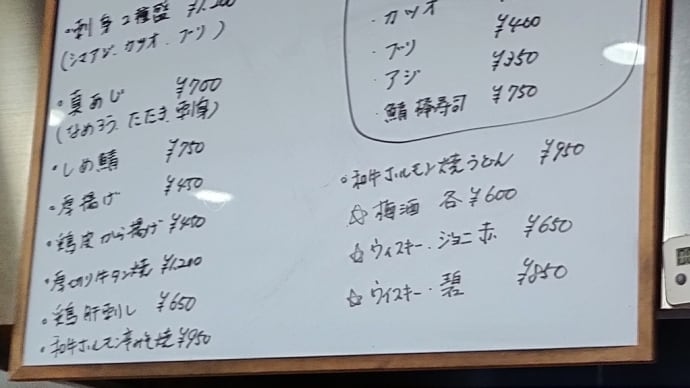 ・刺身2種盛 ¥1,200
(シマアジ、カツオ、ブリ)
・真あじ ¥700
(なめろう、たたき、刺身)
・しめ鯖 ¥750
・厚揚げ ¥450
・鶏皮から揚げ ¥450
・厚切り牛タン焼 ¥1,200
・鶏肝刺し ¥650
・和牛ホルモン辛みそ焼 ¥950
・カツオ
¥400
・ブリ
・アジ ¥350
・鯖棒寿司 ¥750
・和牛ホルモン焼うどん ¥950
☆梅酒 各¥600
☆ウィスキー・ジョニ赤 ¥650
☆ウイスキー・碧 ¥850